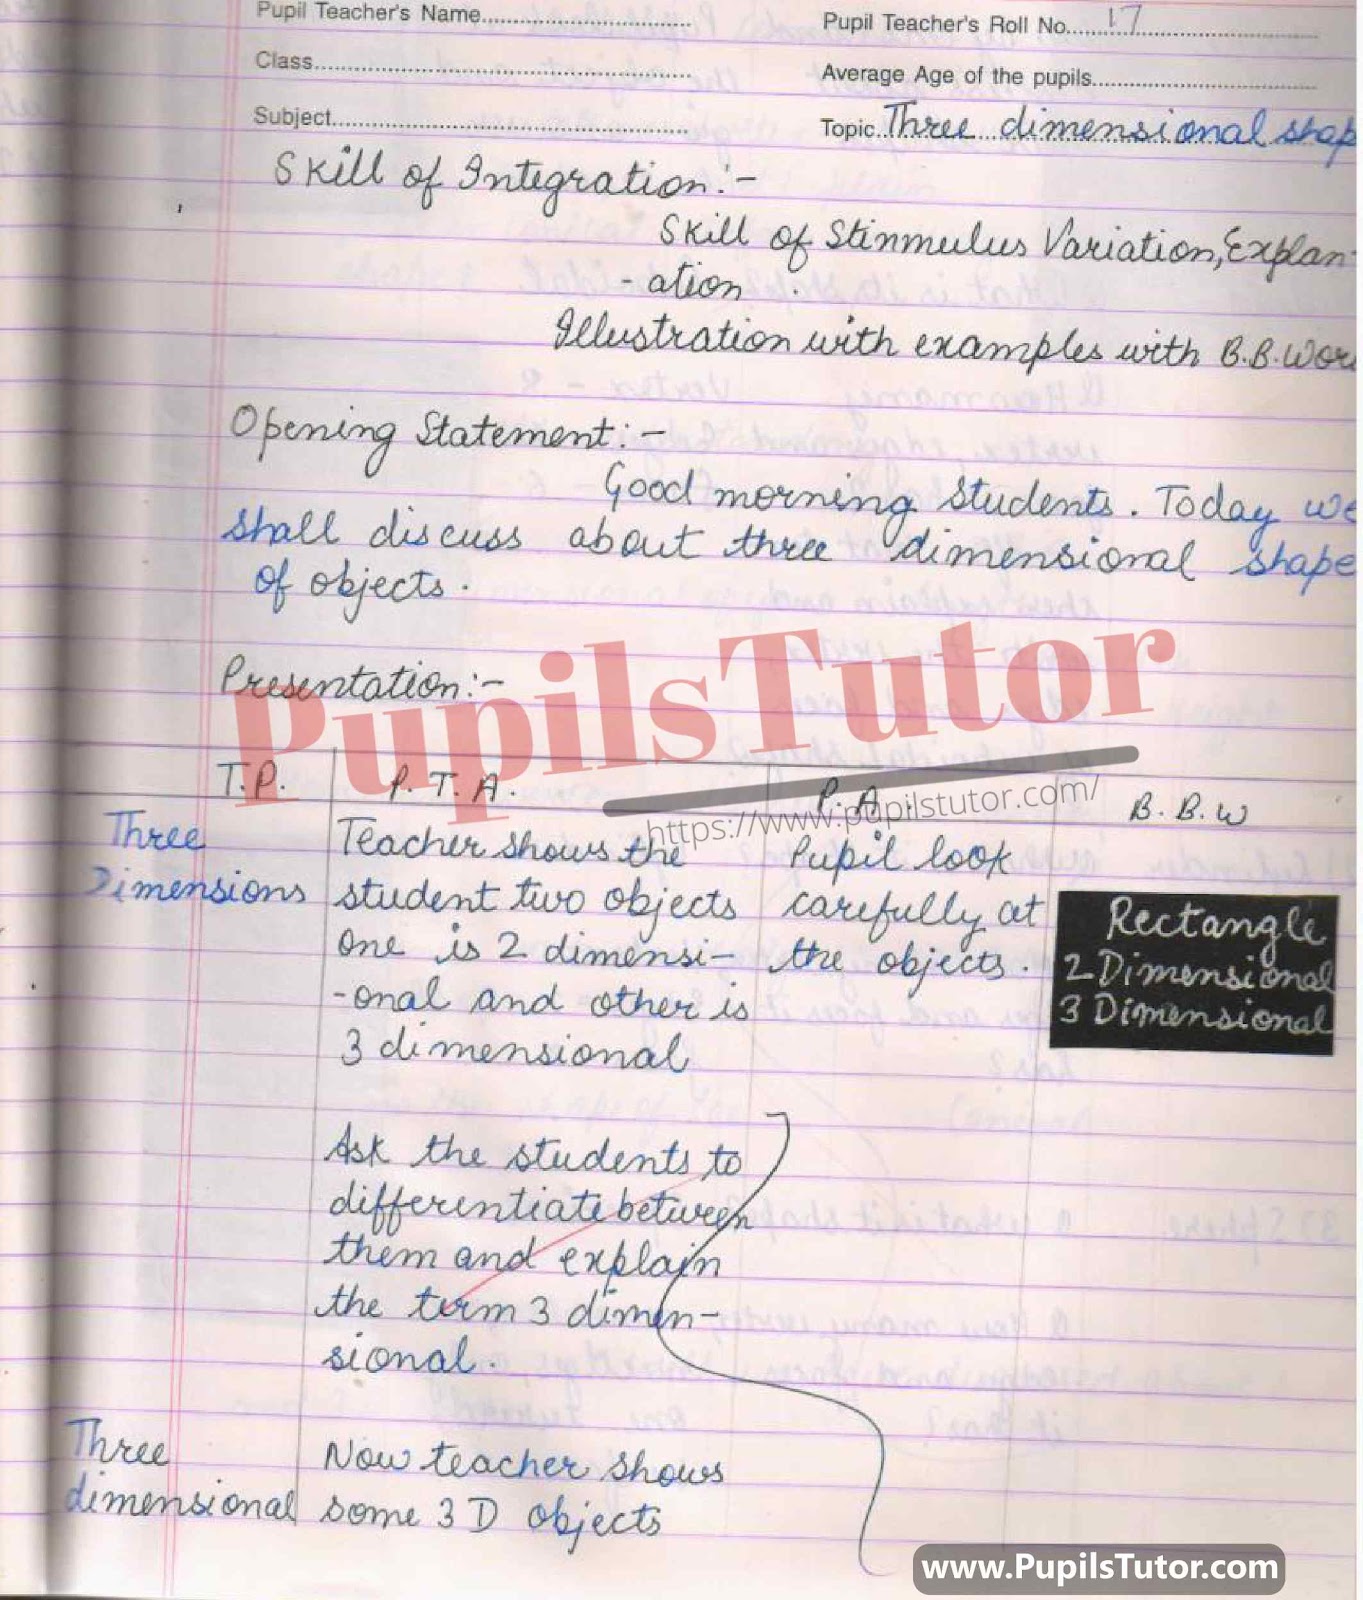 Pupil Teacher's Name
Pupil Teacher's Roll No. 17
Class
Average Age of the pupils
Subject
Topic Three dimensional shap
Skill of Integration:-
Skill of Stinmulus Variation, Explan-
-ation
Illustration with examples with B.B.Wor
Opening Statement:-
Good morning students. Today we
shall discuss about three dimensional shape
of objects.
Presentation:-
PupilsTutor
https://www.pupilstutor.com/
T.P.
P.T.A.
P.A.
B.B.W
Three
Dimensions
Teacher shows the
student two objects
one is 2 dimensi-
-onal and other is
3 dimensional
Pupil look
carefully at
the objects.
Rectangle
2 Dimensional
3 Dimensional
Ask the students to
differentiate between
them and explain
the term 3 dimen-
sional.
Three
dimensional
Now teacher shows
some 3 D objects
www.PupilsTutor.com